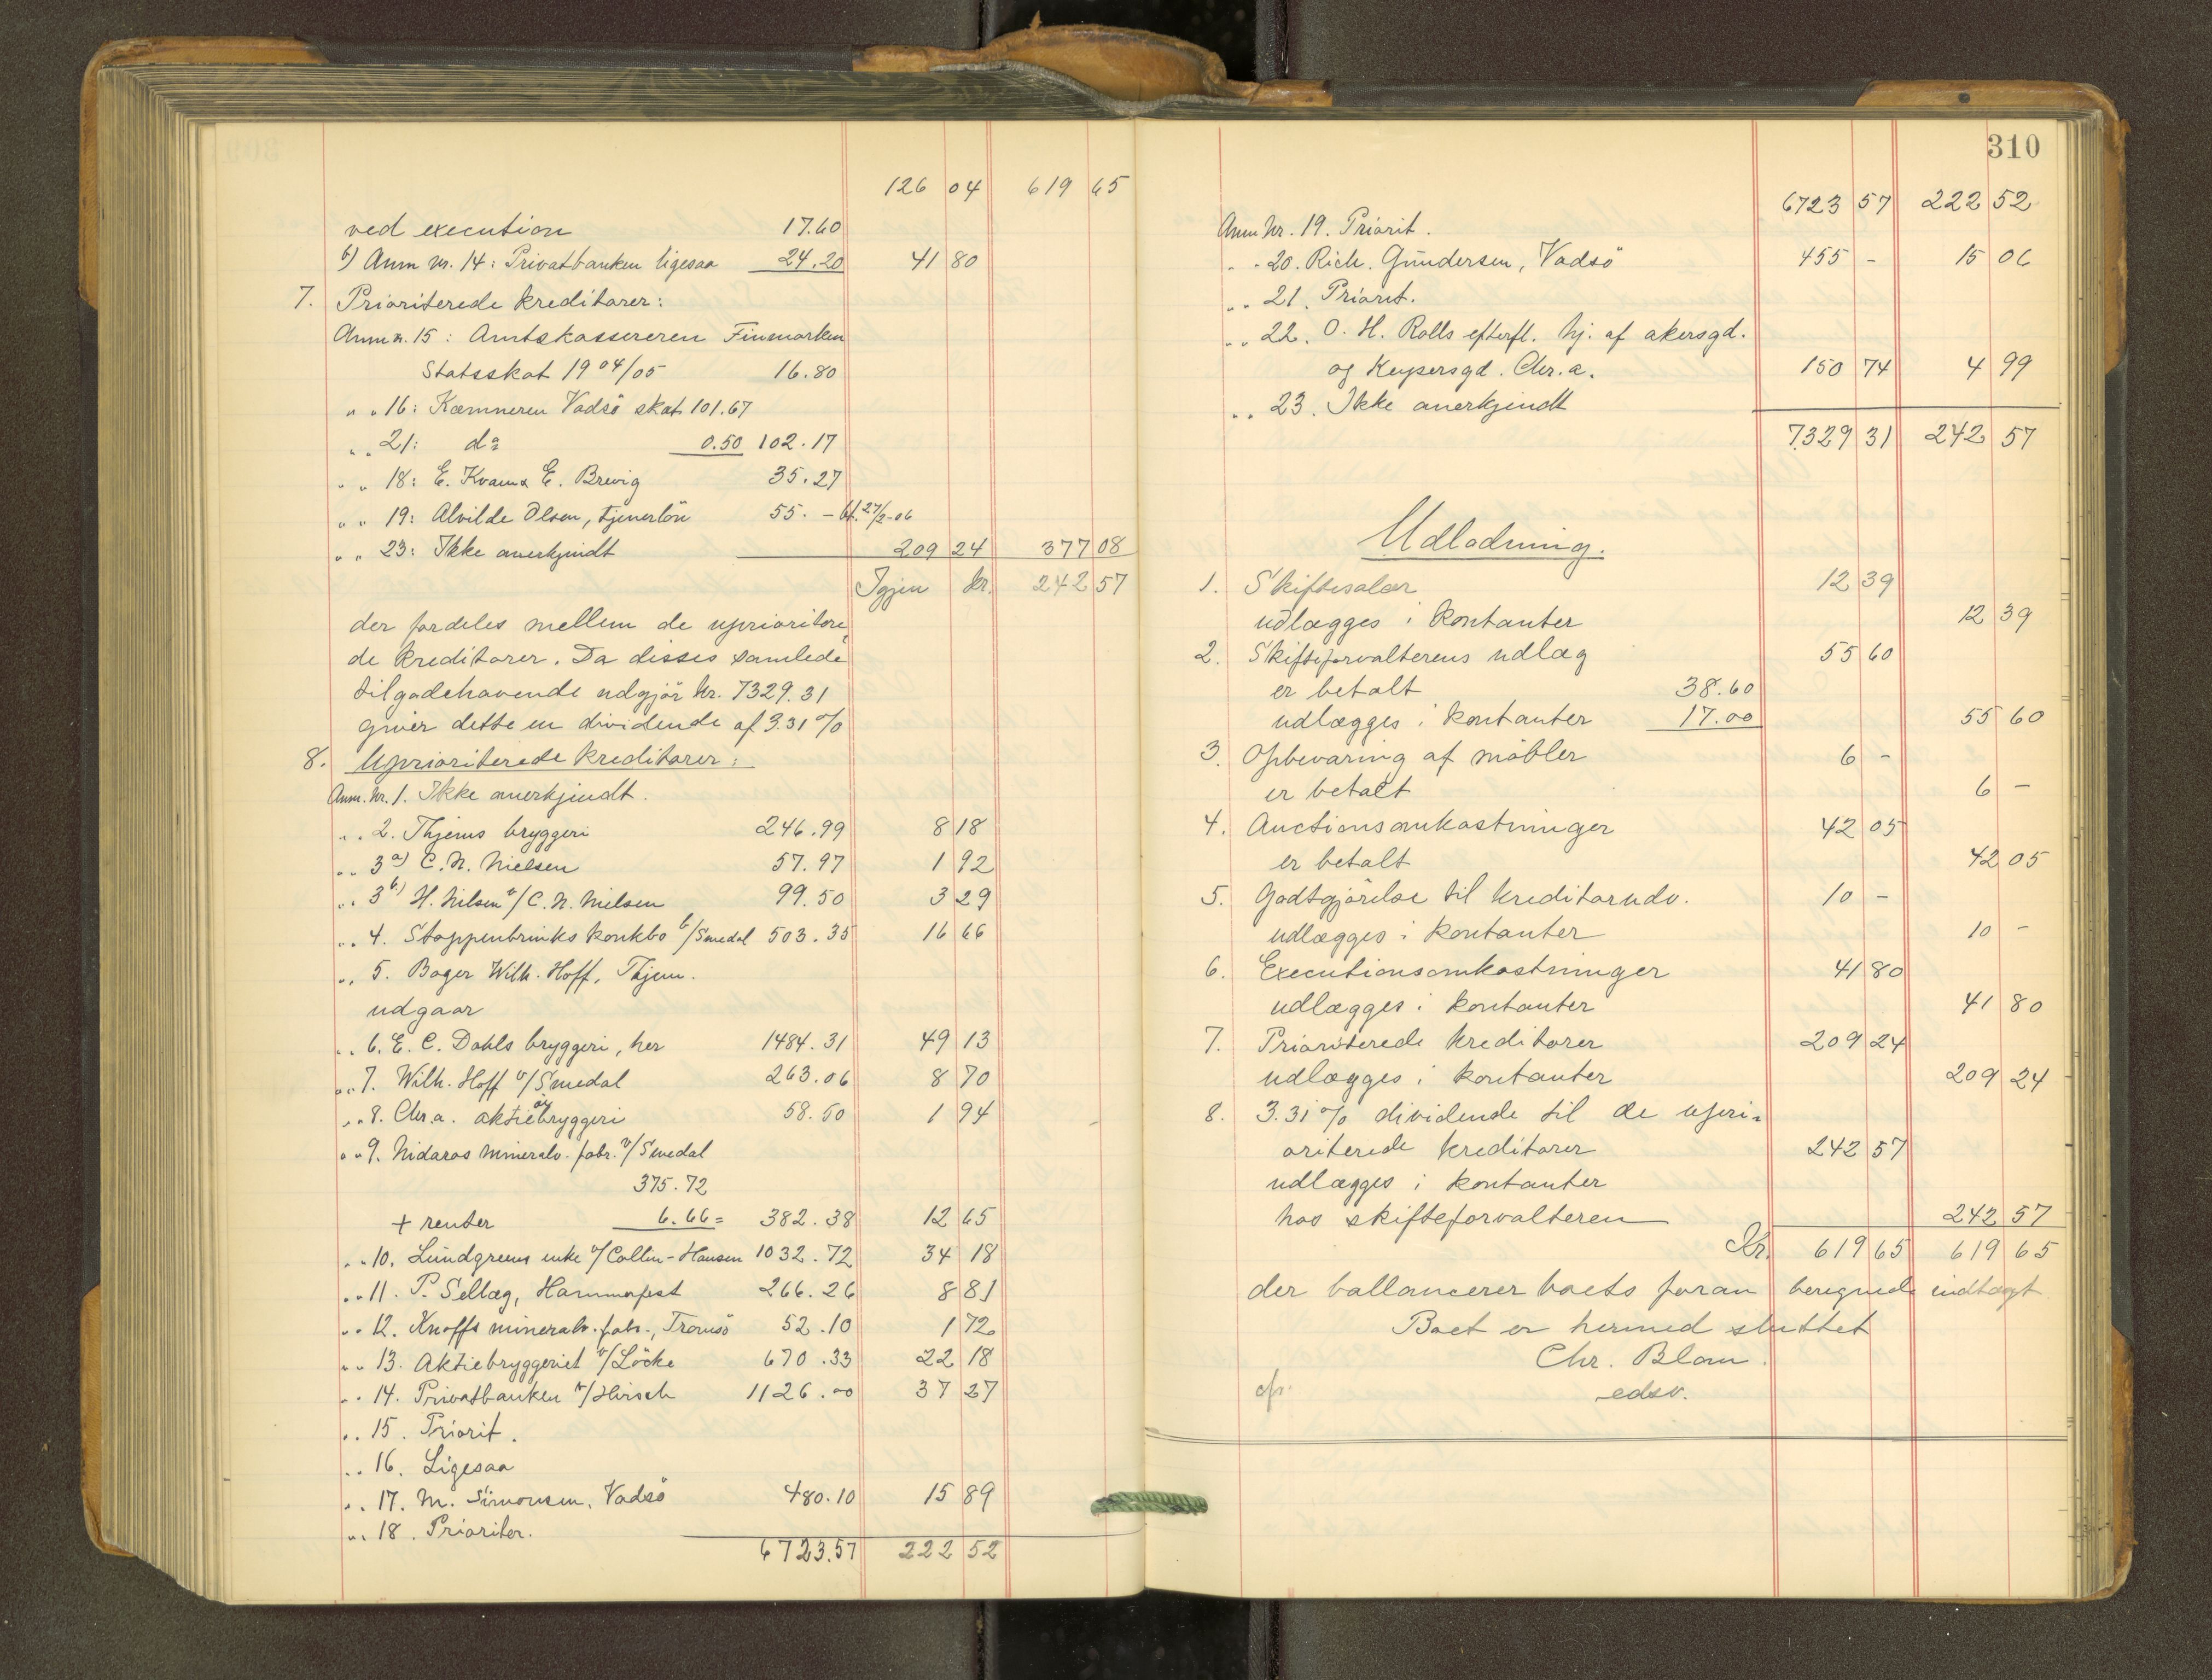 126 04 619 65
ved execution 17.60
b) Anm nr. 14: Privatbanken ligesaa 24.20 41 80
7. Prioriterede kreditorer:
Anm n. 15: Amtskassereren Finmarken
Statsskat 1904/05 16.80
" " 16: Kæmneren Vadsö skat 101.67
" " 21: do 0.50 102.17
" " 18: E. Kvam & E. Brevig 35.27
" " 19: Alvilde Olsen, tjenerlön 55. - bt. 27/2-06
" " 23: Ikke anerkjendt 209 24 377 08
Igjen kr. 242 57
der fordeles mellem de uprioritere
de kreditorer. Da disses samlede
tilgodehavende udgjör kr. 7329.31
giver dette en dividende af 3.31 %
8. Uprioriterede kreditorer:
Anm. Nr. 1. Ikke anerkjendt.
" " 2. Thjems bryggeri 246.99 8 18
" " 3a) C. N. Nielsen 57.97 1 92
" " 3b) H. Nilsen v/ C. N. Nielsen 99.50 3 29
" " 4. Stoppenbrinks konkbo v/ Smedal 503.35 16 66
" " 5. Bager Wilh. Hoff, Thjem.
udgaar
" " 6. E. C. Dahls bryggeri, her 1484.31 49 13
" " 7. Wilh. Hoff v/ Smedal 263.06 8 70
" " 8. Chr.a. aktieölbryggeri 58.50 1 94
" " 9. Nidaros mineralv. fabr. v/ Smedal
375.72
+ renter 6.66 = 382.38 12 65
" " 10. Lundgreens enke v/ Collin-Hansen 1032.72 34 18
" " 11. P. Sellæg, Hammerfest 266.26 8 81
" " 12. Knoffs mineralv. fabr., Tromsö 52.10 1 72
" " 13. Aktiebryggeriet v/ Löcke 670.33 22 18
" " 14. Privatbanken v/ Hirsch 1126.00 37 27
" " 15. Priorit.
" " 16. Ligesaa
" " 17. M. Simonsen, Vadsö 480.10 15 89
" " 18. Prioriter.
6723.57 222 52
310
6723 57 222 52
Anm Nr. 19. Priorit.
" " 20. Rich. Gundersen, Vadsö 455 - 15 06
" " 21. Priorit.
" " 22. O. H. Rolls efterfl. hj. af akersgd.
og Keysersgd. Chr.a. 150 74 4 99
" " 23. Ikke anerkjendt
7329 31 242 57
Udlodning.
1. Skiftesalær 12 39
udlægges i kontanter 12 39
2. Skifteforvalterens udlæg 55 60
er betalt 38.60
udlægges i kontanter 17.00 55 60
3. Opbevaring af möbler 6 -
er betalt 6 -
4. Auctionsomkostninger 42 05
er betalt 42 05
5. Godtgjörelse til kreditorudv. 10 -
udlægges i kontanter 10 -
6. Executionsomkostninger 41 80
udlægges i kontanter 41 80
7. Prioriterede kreditorer 209 24
udlægges i kontanter 209 24
8. 3.31 % dividende til de upri-
oriterede kreditorer 242 57
udlægges i kontanter
hos skifteforvalteren 242 57
Kr. 619 65 619 65
der ballancerer boets foran beregnede indtægt
Boet er hermed sluttet
Chr. Blom.
cfr. edsv.